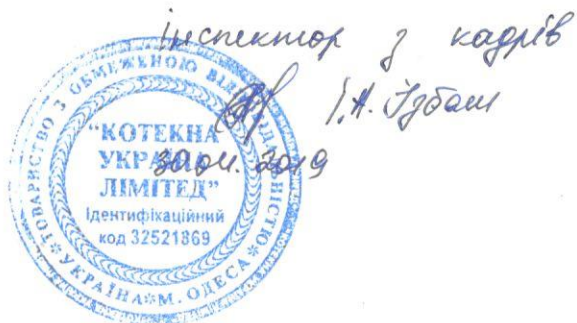 інспектор з кадрів
І.А. Ізбаш
30.04.2019
ТОВАРИСТВО З ОБМЕЖЕНОЮ ВІДПОВІДАЛЬНІСТЮ
"КОТЕКНА
УКРАЇНА
ЛІМІТЕД"
Ідентифікаційний
код 32521869
УКРАЇНА М. ОДЕСА